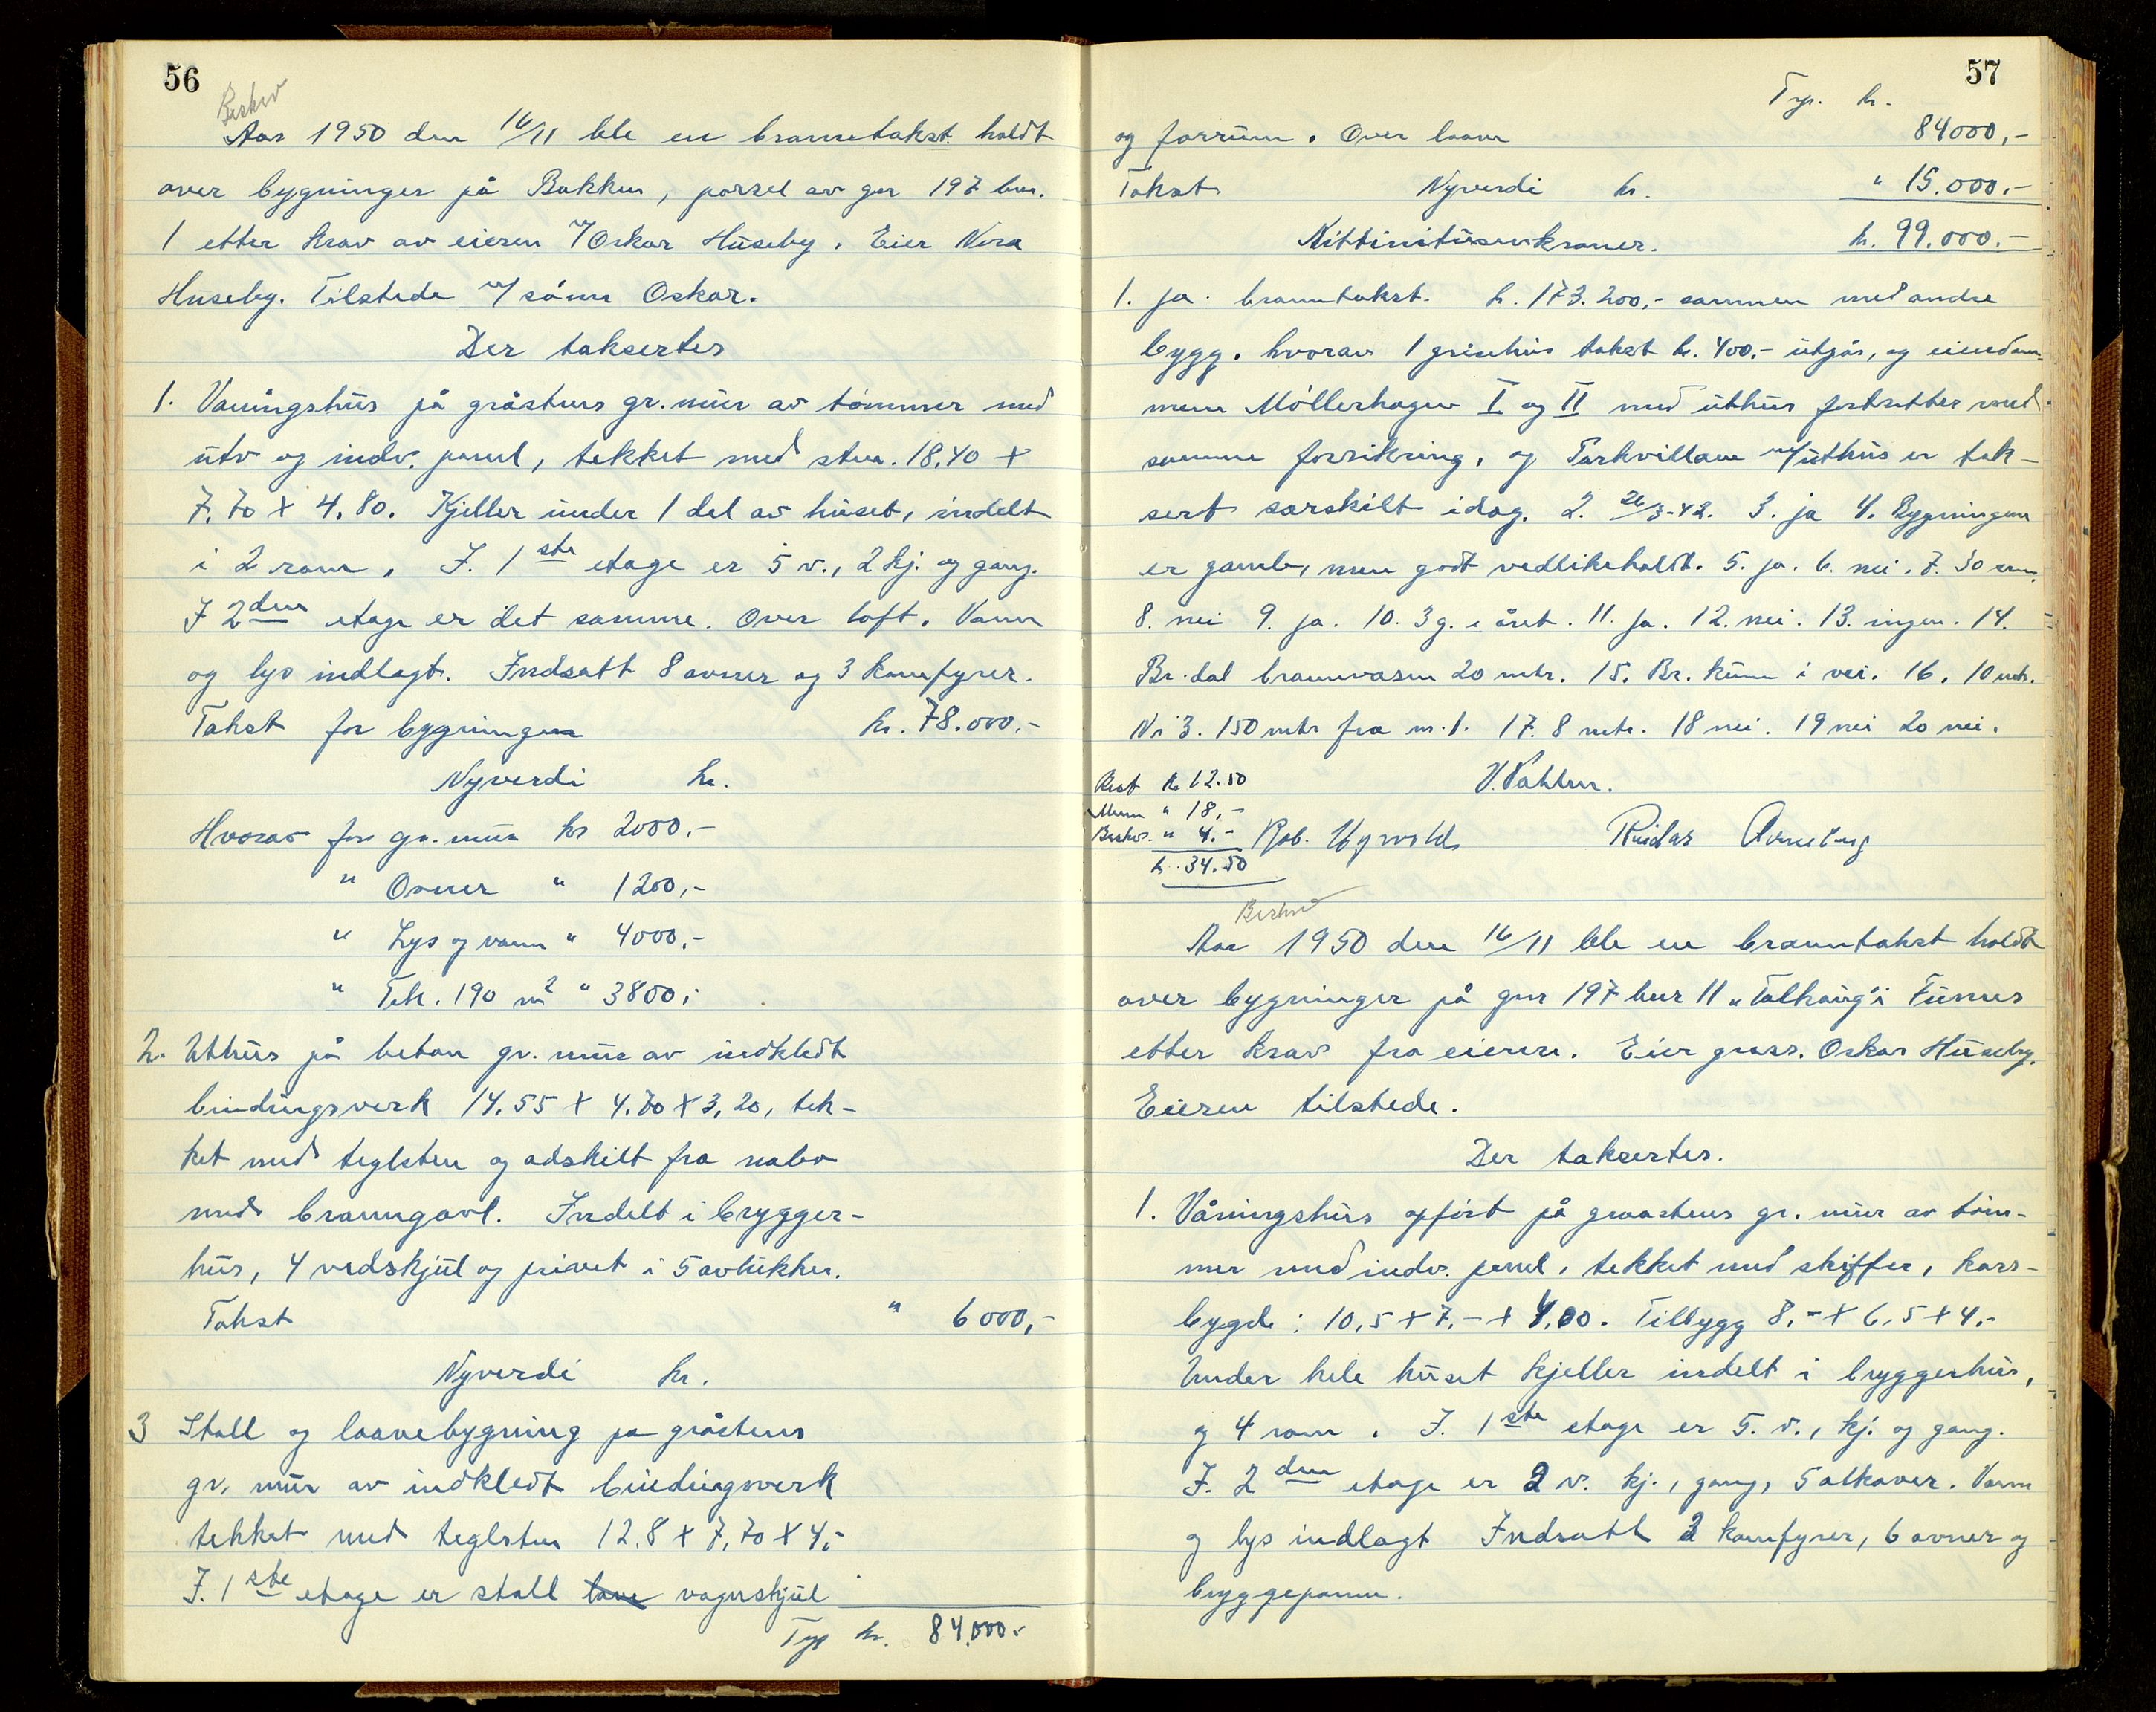 56
Beskrev
Aar 1950 den 16/11 ble en brannetakst holdt
over bygninger på Bakken, parsel av gnr 197 bnr.
1 etter krav av eieren v/ Oskar Huseby. Eier Nora
Huseby. Tilstede v/ sönn Oskar.
Der taksertes
1. Vaningshus på gråstens gr. mur av tömmer med
utv og indv. panel, tekket med sten. 18,40 x
7,70 x 4,80. Kjeller under 1 del av huset, indelt
i 2 rom. I. 1ste etage er 5 v., 2 kj. og gang.
I 2den etage er det samme. Over loft. Vann
og lys indlagt. Indsatt 8 ovner og 3 komfyrer.
Takst for bygningen kr. 78.000.-
Nyverdi kr.
Hvorav for gr. mur kr 2000.-
" Ovner " 1200,-
" Lys og vann " 4000,-
" Tek. 190 m2 " 3800,-
2. Uthus på beton gr. mur av indkledt
bindingsverk 14.55 x 4.70 x 3,20, tek-
ket med teglsten og adskilt fra nabo
med branngavl. Indelt i brygger-
hus, 4 vedskjul og privet i 5 avlukker.
Takst " 6000,-
Nyverdi kr.
3 Stall og laavebygning pa gråstens
gr. mur av indkledt bindingsverk
tekket med teglsten 12.8 x 7,70 x 4,-
I. 1ste etage er stall lave vognskjul
Trp kr. 84.000.-
57
Trp. kr.
og forrum. Over laave 84000,-
Takst Nyverdi kr. " 15.000.-
Nittinitusenkroner. kr. 99.000.-
1. ja. branntakst. kr. 173.200,- sammen med andre
bygg. hvorav 1 grisehus takst kr. 400.- utgår, og eiendom-
mene Möllerhagen I og II med uthus fortsetter med
samme forsikring, og Parkvillaen m/ uthus er tak-
sert sarskilt idag. 2. 26/3-42. 3. ja 4. Bygningene
er gamle, men godt vedlikeholdt. 5. ja. 6. nei. 7. 30
8. nei 9. ja. 10. 3 g. i året. 11. Ja. 12. nei. 13. ingen. 14.
Br. dal brannvasen 20 mtr. 15. Br. kum i vei. 16. 10 mtr.
Nr 3. 150 mtr fra nr. 1. 17. 8 mtr. 18 nei. 19 nei 20 nei.
Rest kr 12.50
" 18,-
Beskr. " 4.-
kr. 34.50
Reidar Arneberg
Beskrev
Aar 1950 den 16/11 ble en branntakst holdt
over bygninger på gnr 197 bnr 11 „Talhaug" i Furnes
etter krav fra eieren. Eier gross. Oskar Huseby.
Eieren tilstede.
Der taksertes.
1. Våningshus opfört på graastens gr. mur av töm-
mer med indv. panel, tekket med skiffer, kors-
bygde: 10,5 x 7,- x 4,00. Tilbygg 8,- x 6,5 x 4,-
Under hele huset kjeller indelt i bryggerhus,
og 4 rom. I. 1ste etage er 5. v., kj. og gang.
I. 2den etage er 2 v. kj., gang, 5 alkover. Vann
og lys indlagt Indsatt 2 komfyrer, 6 ovner og
bryggepanne.